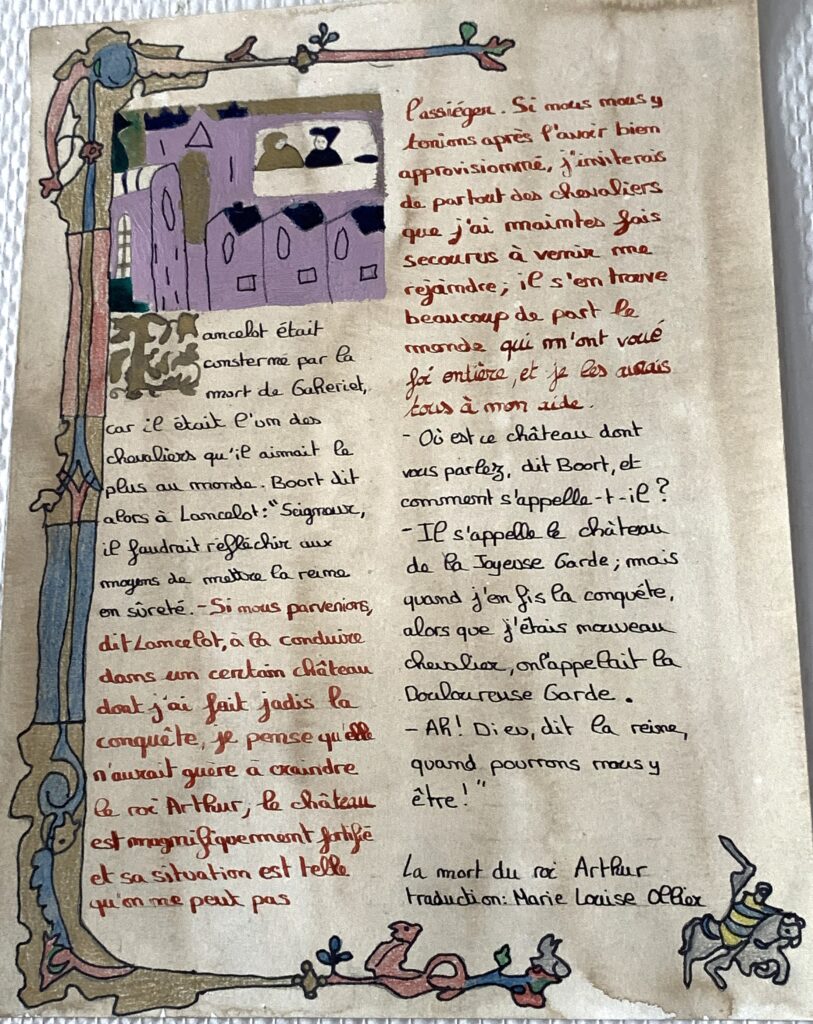 Lancelot était
consterné par la
mort de Gaheriet,
car il était l'un des
chevaliers qu'il aimait le
plus au monde. Boort dit
alors à Lancelot: "Seigneur,
il faudrait réfléchir aux
moyens de mettre la reine
en sûreté. - Si nous parvenions,
dit Lancelot, à la conduire
dans un certain château
dont j'ai fait jadis la
conquête, je pense qu'elle
n'aurait guère à craindre
le roi Arthur; le château
est magnifiquement fortifié
et sa situation est telle
qu'on ne peut pas
l'assiéger. Si nous nous y
tenions après l'avoir bien
approvisionné, j'inviterais
de partout des chevaliers
que j'ai maintes fois
secourus à venir me
rejoindre; il s'en trouve
beaucoup de part le
monde qui m'ont voué
foi entière, et je les aurais
tous à mon aide.
- Où est ce château dont
vous parlez, dit Boort, et
comment s'appelle-t-il?
- Il s'appelle le château
de la Joyeuse Garde; mais
quand j'en fis la conquête,
alors que j'étais nouveau
chevalier, on l'appelait la
Douloureuse Garde.
- Ah! Dieu, dit la reine,
quand pourrons nous y
être!"
La mort du roi Arthur
traduction: Marie Louise Ollier